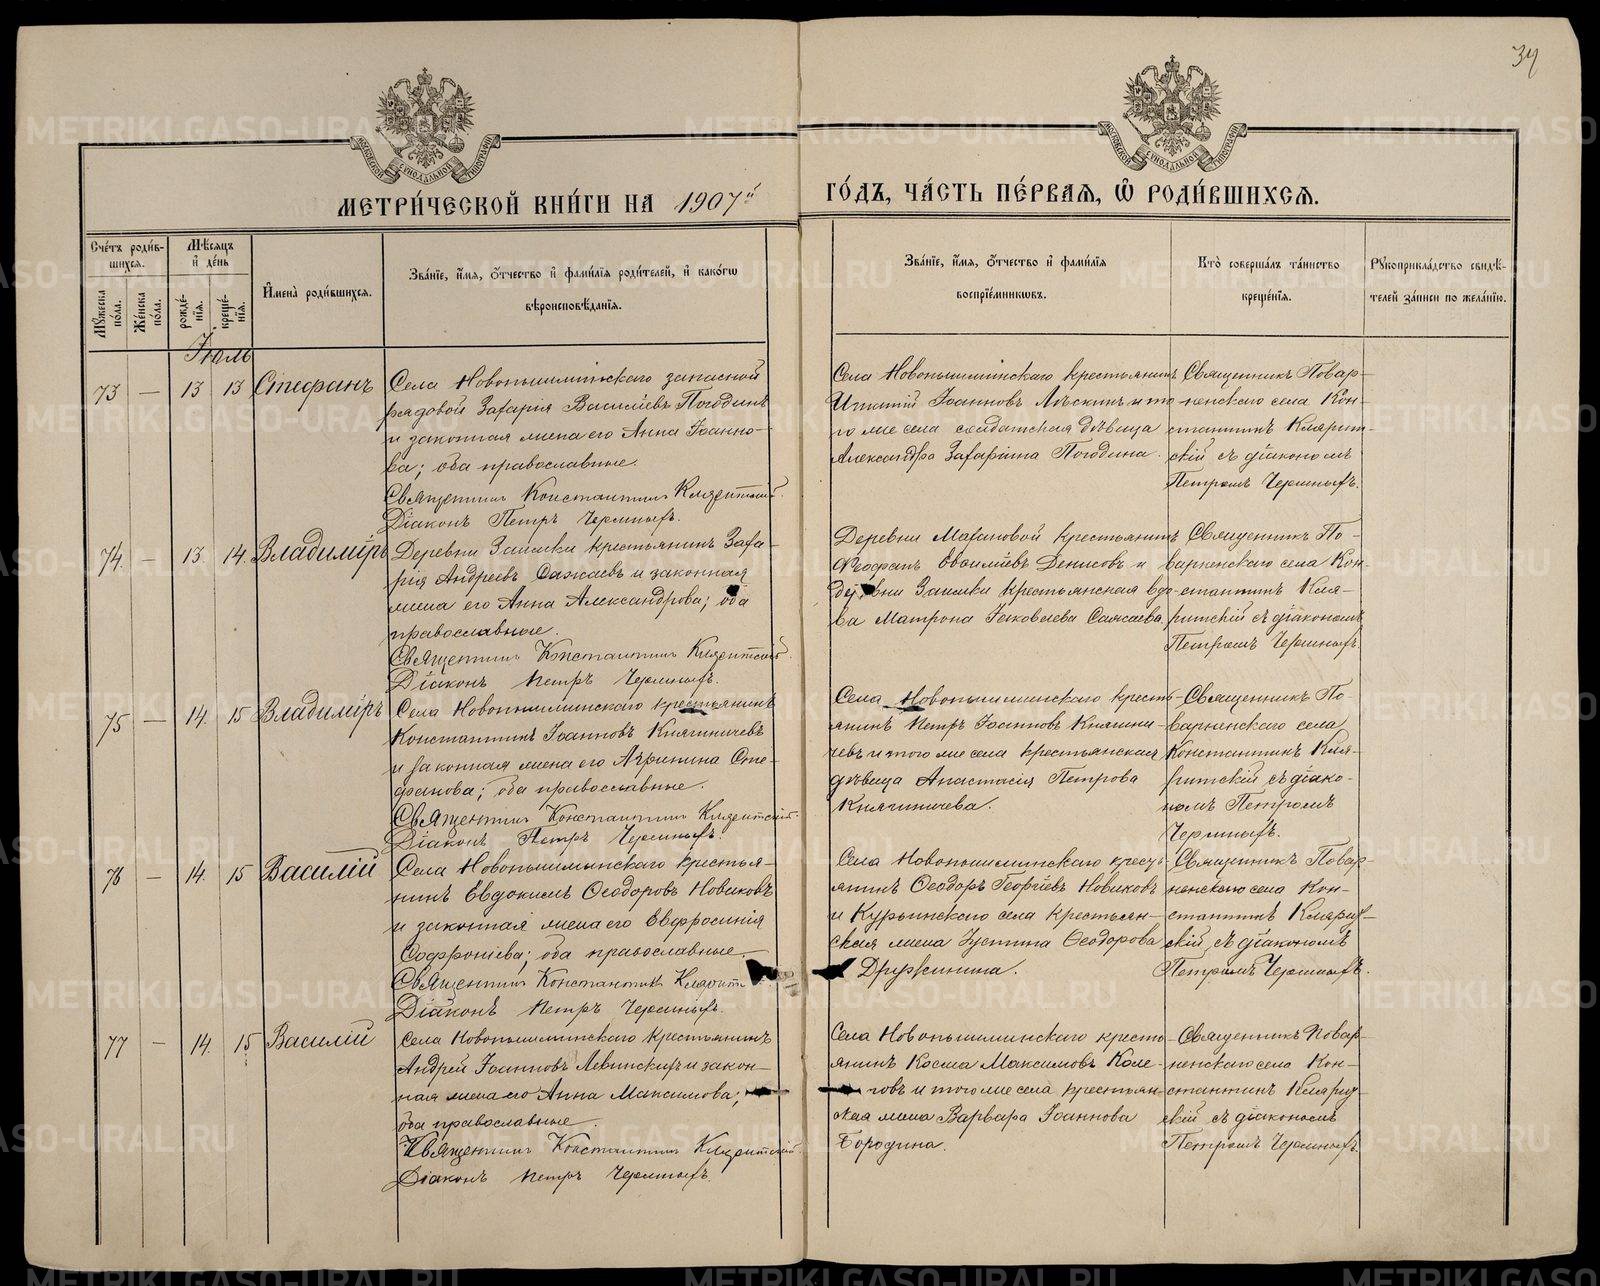 34
МЕТРИ́ЧЕСКОЙ КНИ́ГИ НА 1907й
ГО́ДЪ, ЧА́СТЬ ПЕ́РВАЯ, Ѡ РОДИ́ВШИХСѦ.
Сче́тъ роди́в-
шихся.
Мꙋ́жеска по́ла.
Же́нска по́ла.
Мѣ́сяцъ
и҆ де́нь
рожде́-
нїя.
креще́-
нїя.
И҆мена̀ роди́вшихся.
Зва́нїе, и҆́мя, ѻ҆́тчество и҆ фами́лїя роди́телей, и҆ како́гѡ
вѣроисповѣ́данїя.
Зва́нїе, и҆́мя, ѻ҆́тчество и҆ фами́лїя
воспрїе́мникѡвъ.
Кто̀ соверша́лъ та́инство
креще́нїя.
Рꙋкоприкла́дство свидѣ́-
телей за́писи по жела́нїю.
Іюль
73 — 13 13 Стефанъ
Села Новопышминскаго запасной
рядовой Захарія Василіевъ Погодинъ
и законная жена его Анна Іоанно-
ва; оба православные.
Священникъ Константинъ
Діаконъ Петръ Черемныхъ.
Села Новопышминскаго крестьянинъ
Игнатій Іоанновъ и то-
го же села солдатская дѣвица
Александра Захаріина Погодина.
Священникъ Повар-
ненскаго села Кон-
стантинъ Клярит-
скій съ діакономъ
Петромъ Черемныхъ.
74. — 13. 14. Владиміръ
Деревни Заимки крестьянинъ Заха-
рія Андреевъ Сажаевъ и законная
жена его Анна Александрова; оба
православные.
Священникъ Константинъ
Діаконъ Петръ Черемныхъ.
Деревни Махановой крестьянинъ
Ѳеофанъ Денисовъ и
деревни Заимки крестьянская вдо-
ва Матрона Іаковлева Сажаева.
Священникъ По-
варненскаго села Кон-
стантинъ Кля-
ритскій съ діакономъ
Петромъ Черемныхъ.
75 — 14. 15 Владиміръ
Села Новопышминскаго крестьянинъ
Константинъ Іоанновъ Княгиничевъ
и законная жена его Агрипина Сте-
фанова; оба православные.
Священникъ Константинъ
Діаконъ Петръ Черемныхъ.
Села Новопышминскаго кресть-
янинъ Петръ Іоанновъ Княгини-
чевъ и того же села крестьянская
дѣвица Анастасія Петрова
Княгиничева.
Священникъ По-
варненскаго села
Константинъ Кля-
ритскій съ діако-
номъ Петромъ
Черемныхъ.
76 — 14. 15 Василій
Села Новопышминскаго крестья-
нинъ Евдокимъ Ѳеодоровъ Новиковъ
и законная жена его Евфросинія
Софроніева; оба православные.
Священникъ Константинъ
Діаконъ Петръ Черемныхъ.
Села Новопышминскаго кресть-
янинъ Ѳеодоръ Георгіевъ Новиковъ
и Курьинскаго села крестьян-
ская жена Іустина Ѳеодорова
Дружинина.
Священникъ Повар-
ненскаго села Кон-
стантинъ Клярит-
скій съ діакономъ
Петромъ Черемныхъ.
77 — 14. 15 Василій
Села Новопышминскаго крестьянинъ
Андрей Іоанновъ Левинскихъ и закон-
ная жена его Анна Максимова;
оба православные.
Священникъ Константинъ
Діаконъ Петръ Черемныхъ.
Села Новопышминскаго кресть-
янинъ Косма Максимовъ Коле-
говъ и того же села крестьян-
ская жена Варвара Іоаннова
Бородина.
Священникъ Повар-
ненскаго села Кон-
стантинъ Клярит-
скій съ діакономъ
Петромъ Черемныхъ.
METRIKI.GASO-URAL.RU